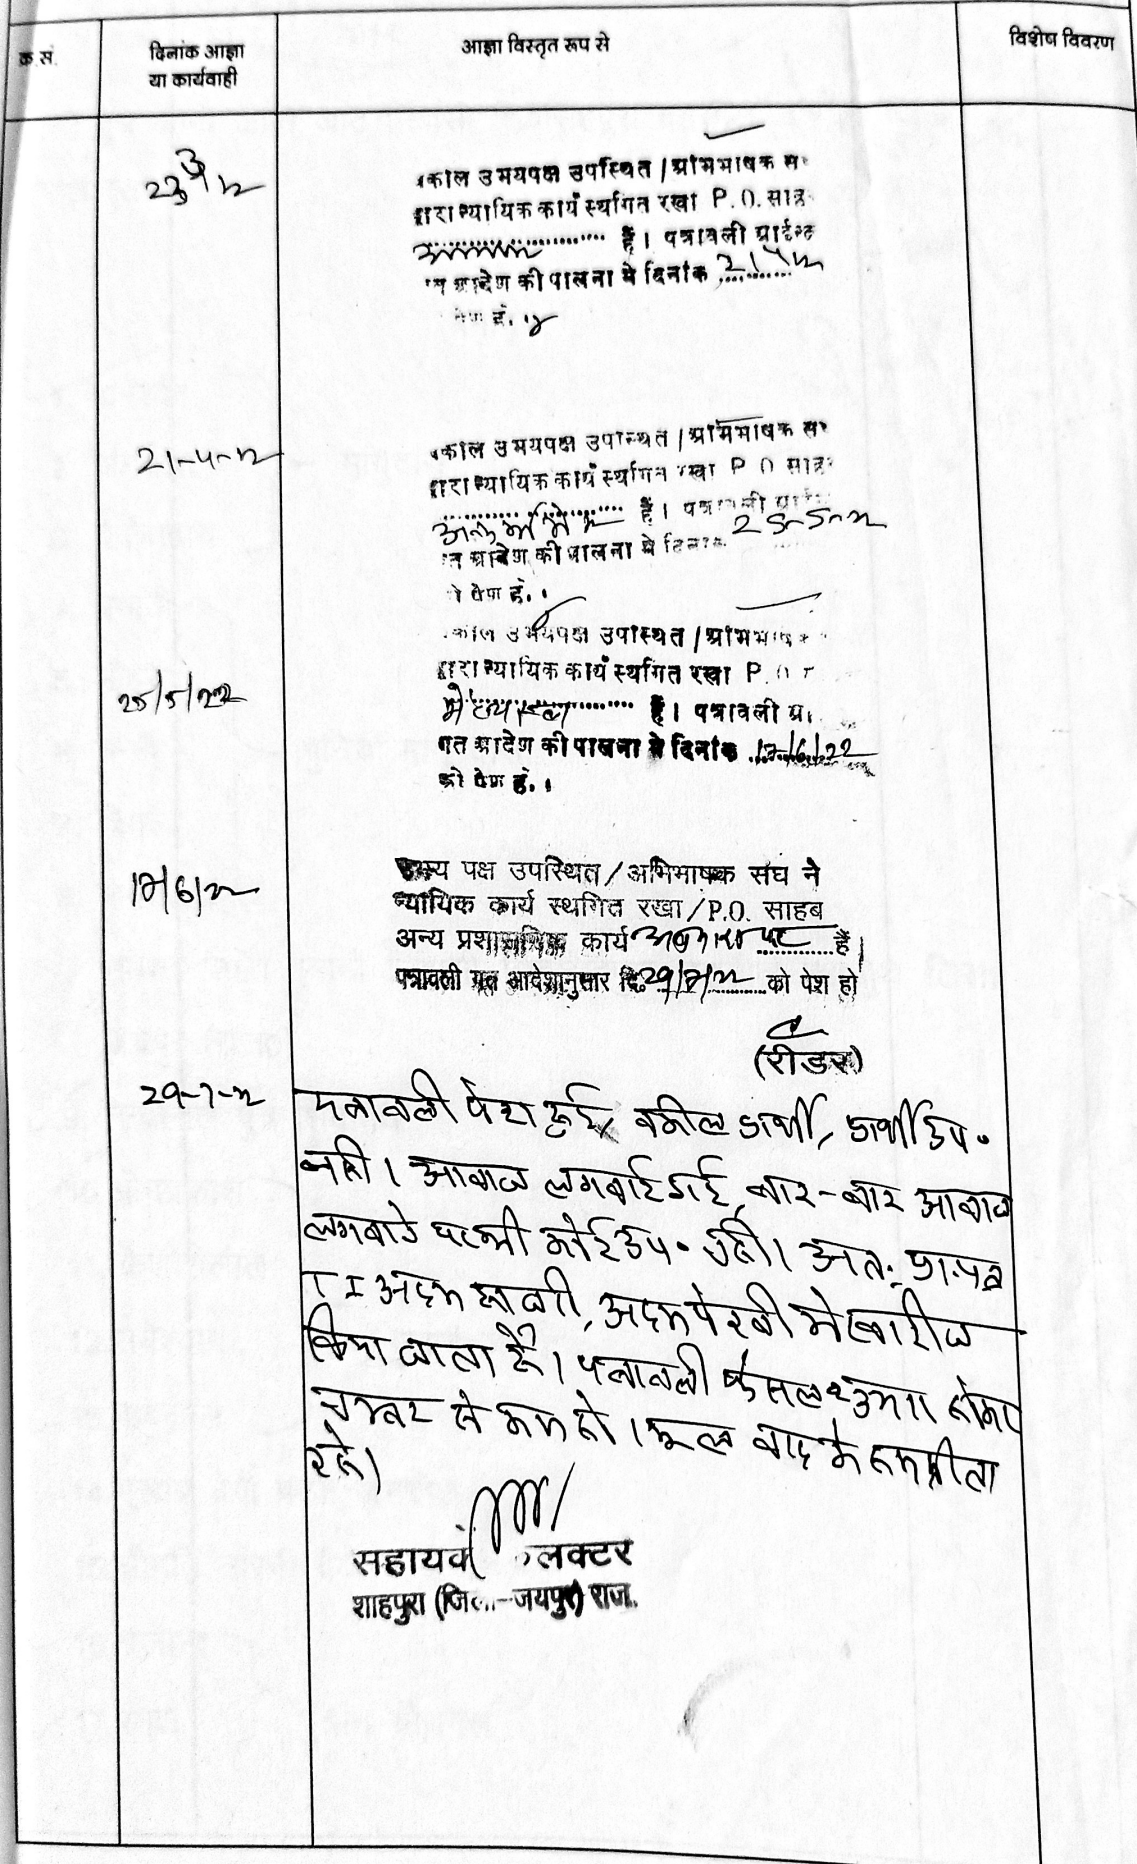 क.सं.
दिनांक आज्ञा
या कार्यवाही
आज्ञा विस्तृत रूप से
विशेष विवरण
वकील उभयपक्ष उपस्थित / अभिभाषक
न्यायिक कार्य स्थगित रखा P.O. साह
हैं। पत्रावली
आदेश की पालना में दिनांक
21-4-22
वकील उभयपक्ष उपस्थित / अभिभाषक
न्यायिक कार्य स्थगित रखा P O साह
हैं।
25-5-22
आदेश की पालना में
पेश हो।
उभयपक्ष उपस्थित /
न्यायिक कार्य स्थगित रखा P.O
25/5/22
हैं। पत्रावली
गत आदेश की पालना में दिनांक 17/6/22
को पेश हो।
17/6/22
उभय पक्ष उपस्थित / अभिभाषक संघ ने
न्यायिक कार्य स्थगित रखा / P.O. साहब
अन्य प्रशासनिक कार्य अवकाश पर हैं।
पत्रावली गत आदेशानुसार दि. 29/7/22 को पेश हो
(रीडर)
29-7-22
पत्रावली पेश हुई, वकील प्रार्थी, प्रार्थी उप.
नहीं। आवाज लगवाई गई, बार-बार आवाज
लगवाने पर भी कोई उप. नहीं। अतः प्रा.पत्र
T I अदम हाजरी, अदम पैरवी में खारीज
किया जाता है। पत्रावली फैसल शुमार होकर
नम्बर से कम हो। मूल वाद के हमफीता
रहे।
सहायक कलक्टर
शाहपुरा (जिला-जयपुर) राज.